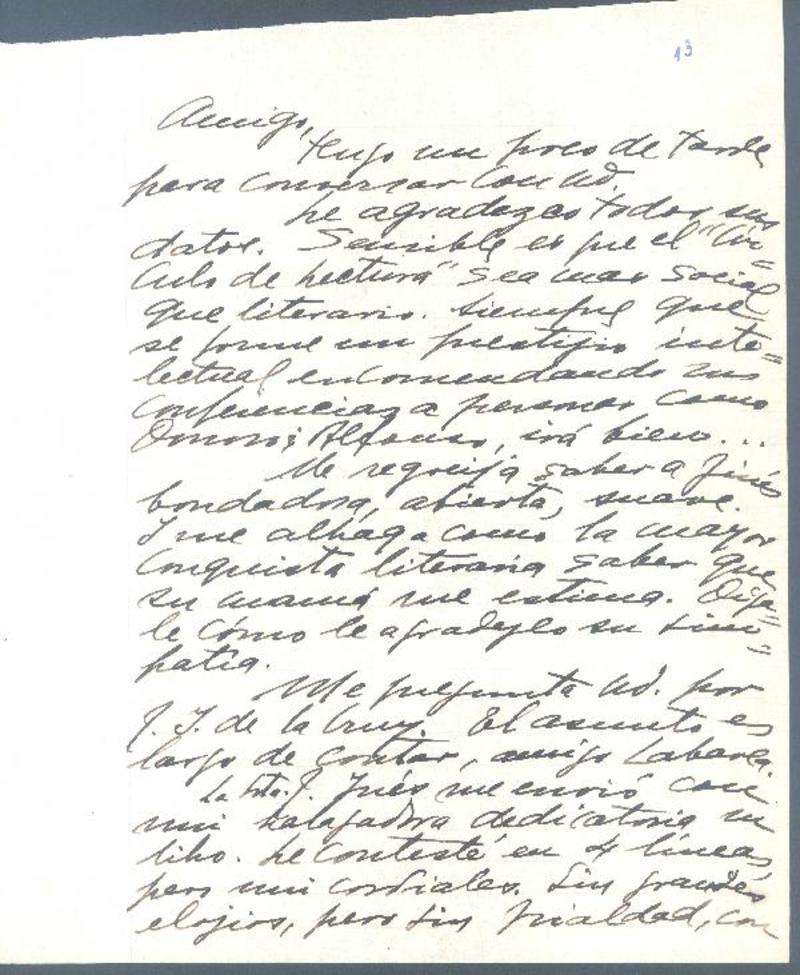 13
Amigo,
tengo un poco de tarde
para conversar con Ud.
Le agradezco todos sus
datos. Sensible es que el "Cír=
culo de Lectura" sea mas social
que literario. Siempre que
se forme un prestijio inte=
lectual encomendando sus
conferencias a personas como
Omer i Alfonso, irá bien...
Me regocija saber a Inés
bondadosa, abierta, suave.
I me alhaga como la mayor
conquista literaria saber que
su mamá me estima. Díga=
le cómo le agradezco su sim=
patía.
Me pregunta Ud. por
J. I. de la Cruz. El asunto es
largo de contar, amigo Labarca.
La Srta. J. Inés me envió con
mui halagadora dedicatoria su
libro. Le contesté en 4 líneas,
pero mui cordiales. Sin grandes
elojios, pero sin frialdad, con